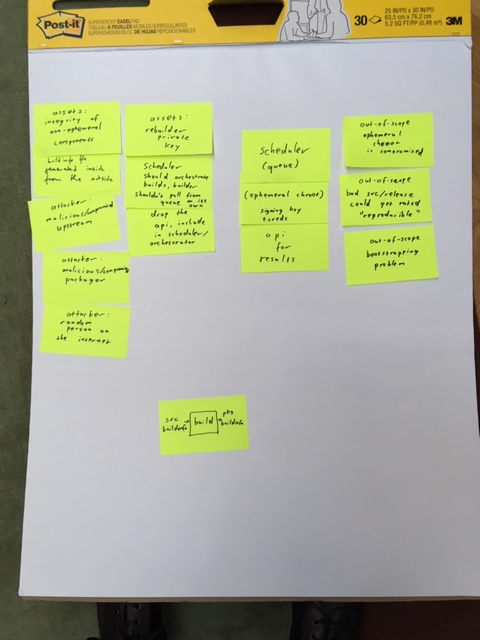 Post-it
SUPERSTICKY EASEL PAD
TABLEAU À FEUILLES MOBILES SUPERCOLLANTES
30
25 IN/PO x 30 IN/PO
63,5 cm x 76,2 cm
5.2 SQ FT/PP (0,48 m²)
3M
assets:
integrity of
non-ephemeral
components
buildinfo file
generated inside
from the outside
attacker:
malicious/compromised
upstream
attacker:
malicious/compromised
packager
attacker:
random
person on
the internet
assets:
rebuilder
private
key
Scheduler
should orchestrate
builds, builder
shouldn't pull from
queue on its
own
drop the
api, include
in scheduler/
orchestrator
Scheduler
(queue)
(ephemeral chroot)
signing key
creds
api
for
results
out-of-scope
ephemeral
chroot
is compromised
out-of-scope
bad src/release
could get rated
"reproducible"
out-of-scope
bootstrapping
problem
src
buildinfo
build
pkg
buildinfo